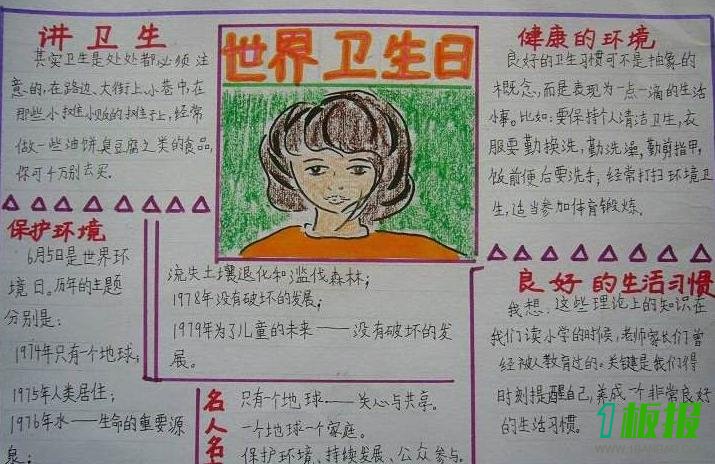 讲卫生
其实卫生是处处都必须注
意的,在路边、大街上,小巷中,在
那些小摊小贩的摊子上,经常
做一些油饼,臭豆腐之类的食品,
你可千万别去买.
世界卫生日
健康的环境
良好的卫生习惯可不是抽象的
概念,而是表现为一点一滴的生活
小事。比如:要保持个人清洁卫生,衣
服要勤换洗,勤洗澡,勤剪指甲,
饭前便后要洗手,经常打扫环境卫
生,适当参加体育锻炼.
保护环境
6月5日是世界环
境日。历年的主题
分别是:
1974年只有一个地球;
1975年人类居住;
1976年水——生命的重要源
泉;
流失土壤退化和滥伐森林;
1978年没有破坏的发展;
1979年为了儿童的未来——没有破坏的发
展。
名人名
只有一个地球——关心与共享。
一个地球一个家庭。
保护环境、持续发展、公众参与。
良好的生活习惯
我想,这些理论上的知识在
我们读小学的时候,老师家长们曾
经被人教育过的。关键是我们得
时刻提醒自己,养成一个非常良好
的生活习惯。
1板报
WWW.1BANBAO.COM